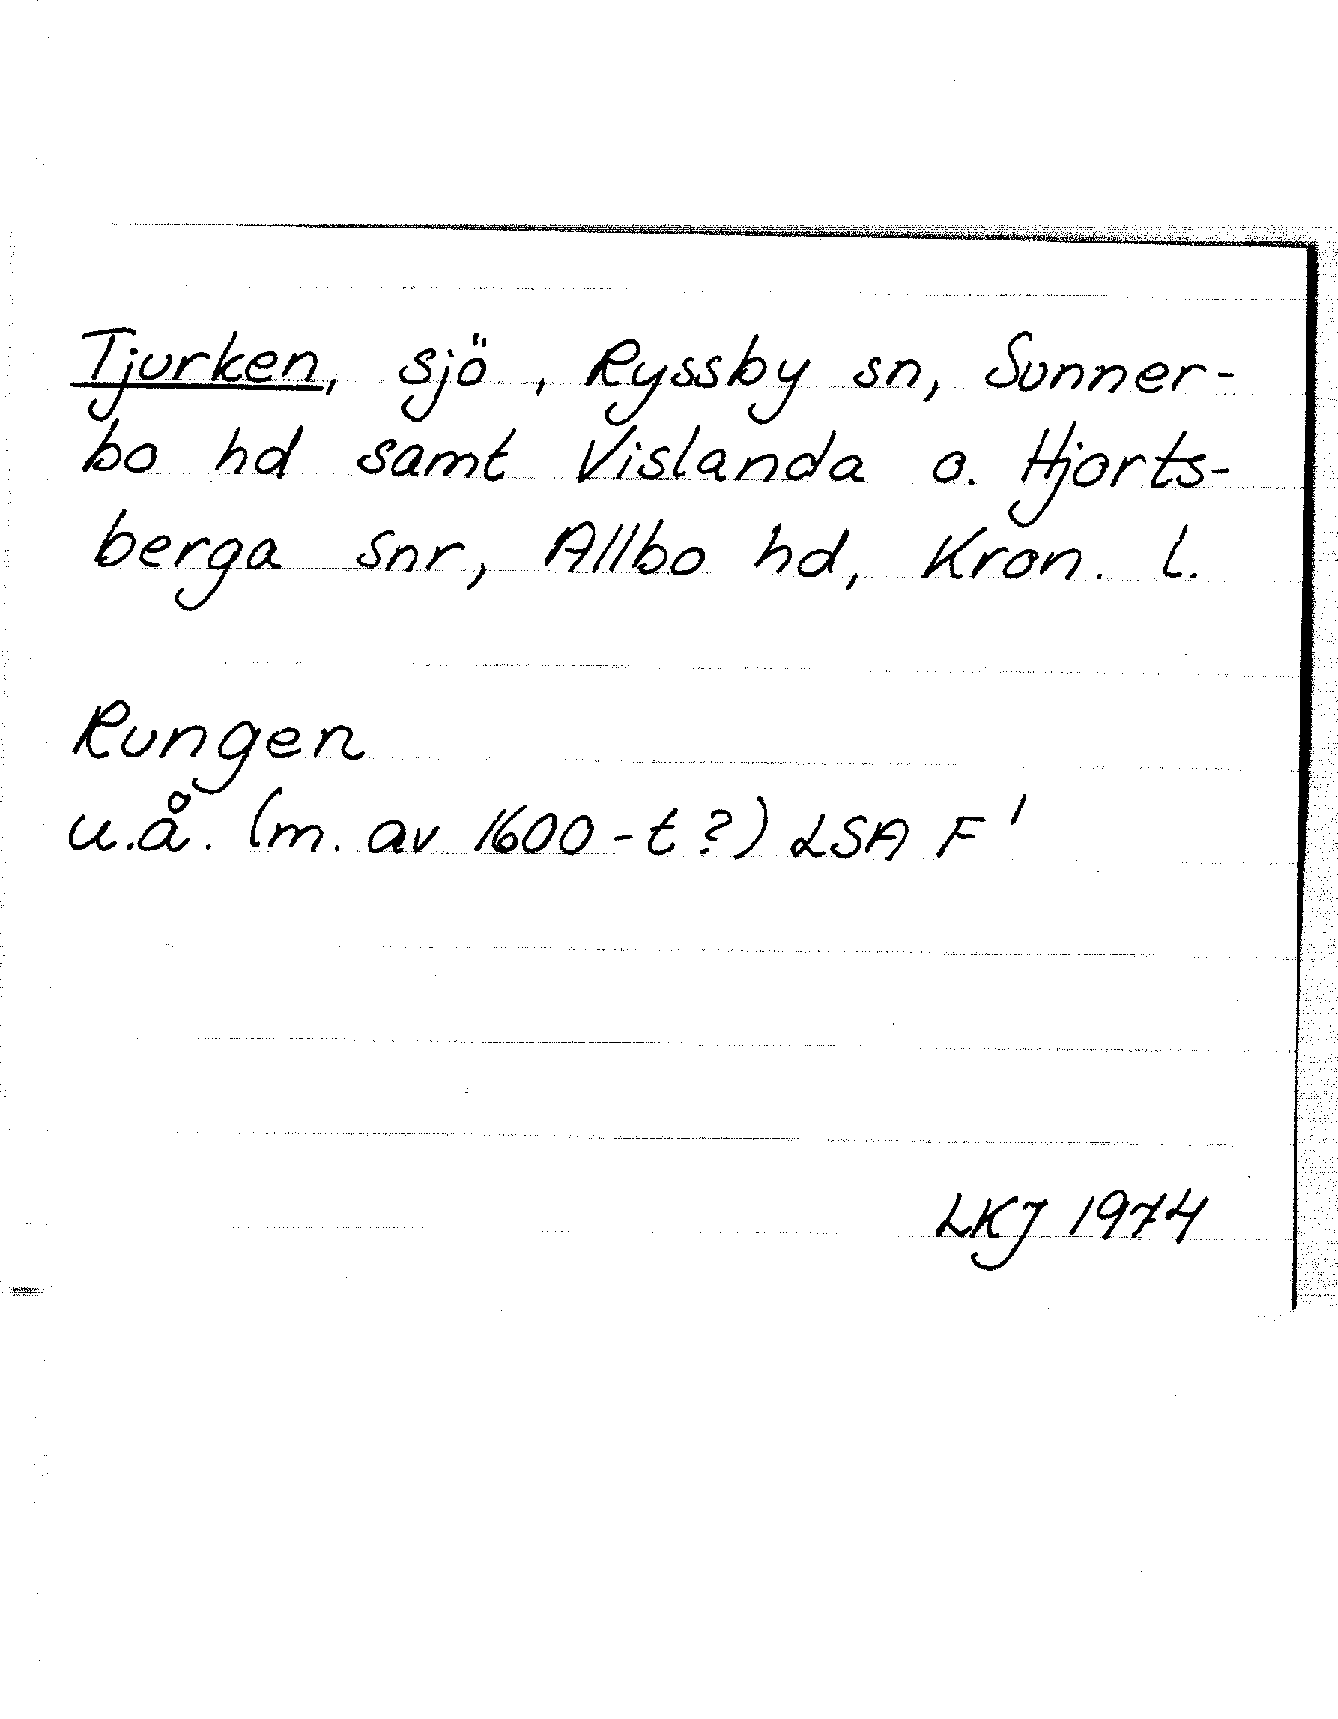 Tjurken, sjö, Ryssby sn, Sunner-
bo hd samt Vislanda o. Hjorts-
berga snr, Allbo hd, Kron. l.
Rungen
u.å. (m. av 1600-t?) LSA F'
LKJ 1974